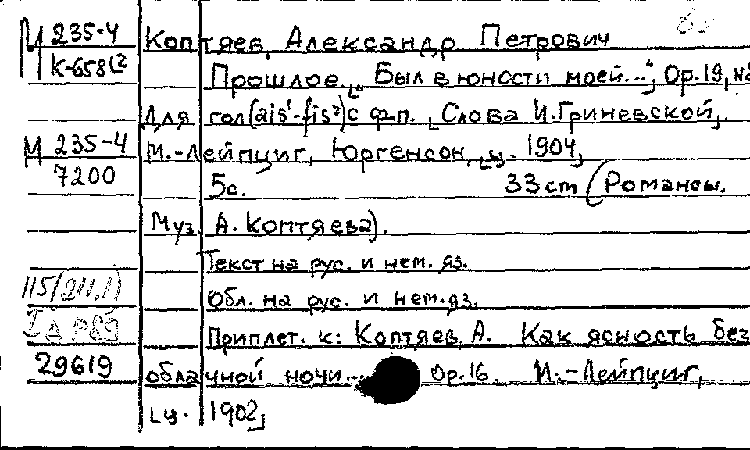 М 235-4 Коптяев, Александр Петрович
К-658(2 Прошлое. „Был в юности моей...", Op.19, №
Для гол(ais¹-fis²) с ф-п. [Слова И.Гриневской],
М 235-4 М.-Лейпциг, Юргенсон, [ц. 1904],
7200 5с. 33cm (Романсы.
Муз. А. Коптяева).
Текст на рус. и нем. яз.
Обл. на рус. и нем.яз.
Приплет. к: Коптяев, А. Как ясность без
29619 облачной ночи... Op.16. М.-Лейпциг,
[ц. 1902]